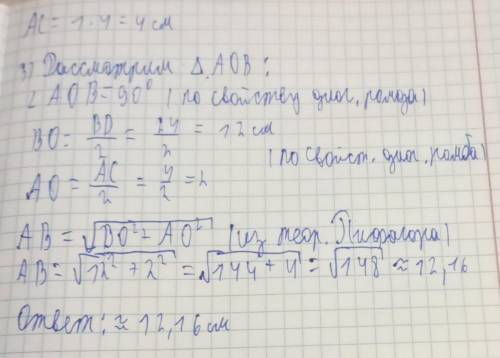 AC = 1 · 4 = 4 см
3) Рассмотрим △AOB:
∠AOB = 90° (по свойству диог. ромба)
BO = BD/2 = 24/2 = 12 см
(по свойст. диог. ромба)
AO = AC/2 = 4/2 = 2
AB = √BO² - AO² (из теор. Пифогора)
AB = √12² + 2² = √144 + 4 = √148 ≈ 12,16
Ответ: ≈ 12,16 см